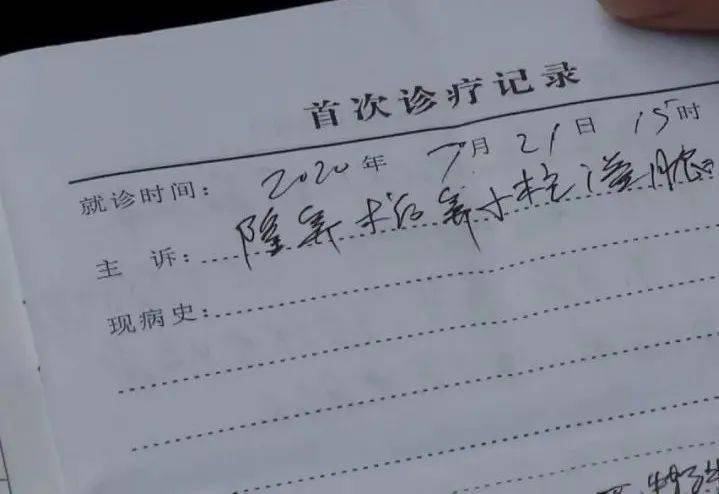 首次诊疗记录
就诊时间：2020年 7月 21日 15时
主 诉：隆鼻术后鼻小柱溢脓
现病史：